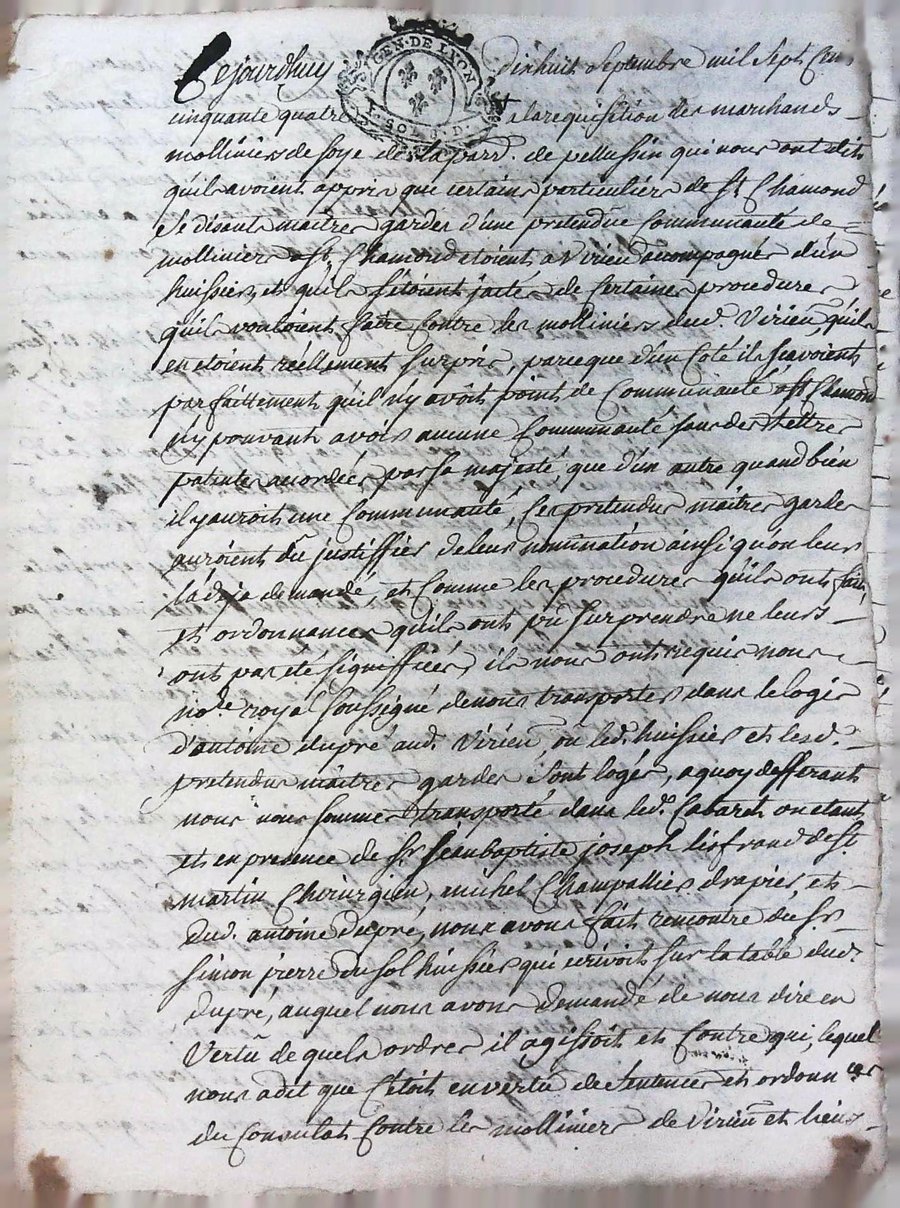 Cejourdhuy dixhuit Septembre mil Sept Cens
GEN. DE LYON
SOLS
cinquante quatre a la requisition des marchands
molliniers de soye de la parr. de pellussin qui nous ont dit
quils avoient appris que certains particuliers de St Chamond
se disants maitres gardes d'une pretendue Communauté de
molliniers a St Chamond etoient a Virieu accompagnés d'un
huissier, et qu'ils s'étoient jactés de certaines procedures
quils vouloient faire Contre les molliniers dud. Virieu, quils
en etoient réellement Surpris, parceque d'un Coté ils scavoient
parfaittement quil n'y avoit point de Communauté a St Chamond
n'y pouvant avoir aucune Communauté sans des lettres
patentes accordées par sa majesté, que d'un autre quand bien
il y auroit une Communauté, Ces pretendus maitres gardes
auroient dû justiffier de leur nommination ainsi quon leur
la deja demandé, et Comme les procedures quils ont fait,
et ordonnances quils ont pû Surprendre ne leurs
ont pas été signiffiées, ils nous ont requis nous
nore. royal soussigné de nous transporter dans le logis
d'antoine dupré aud. Virieu, ou led. huissier et lesd.
pretendus maitres gardes sont logés, a quoy defferant
nous nous sommes transporté dans led. Cabaret ou etant
et en presence de Sr Jean baptiste joseph lisfrand de St
martin Chirurgien, michel Champallier drapier, et
dud. antoine dupré, nous avons fait rencontre du Sr
Simon pierre du sol huissier qui ecrivoit sur la table dud.
dupré, auquel nous avons demandé de nous dire en
Vertu de quels ordres il agissoit et Contre qui, lequel
nous a dit que C'étoit en vertu de Sentences et ordonnces
du Consulat Contre les molliniers de Virieu et lieux